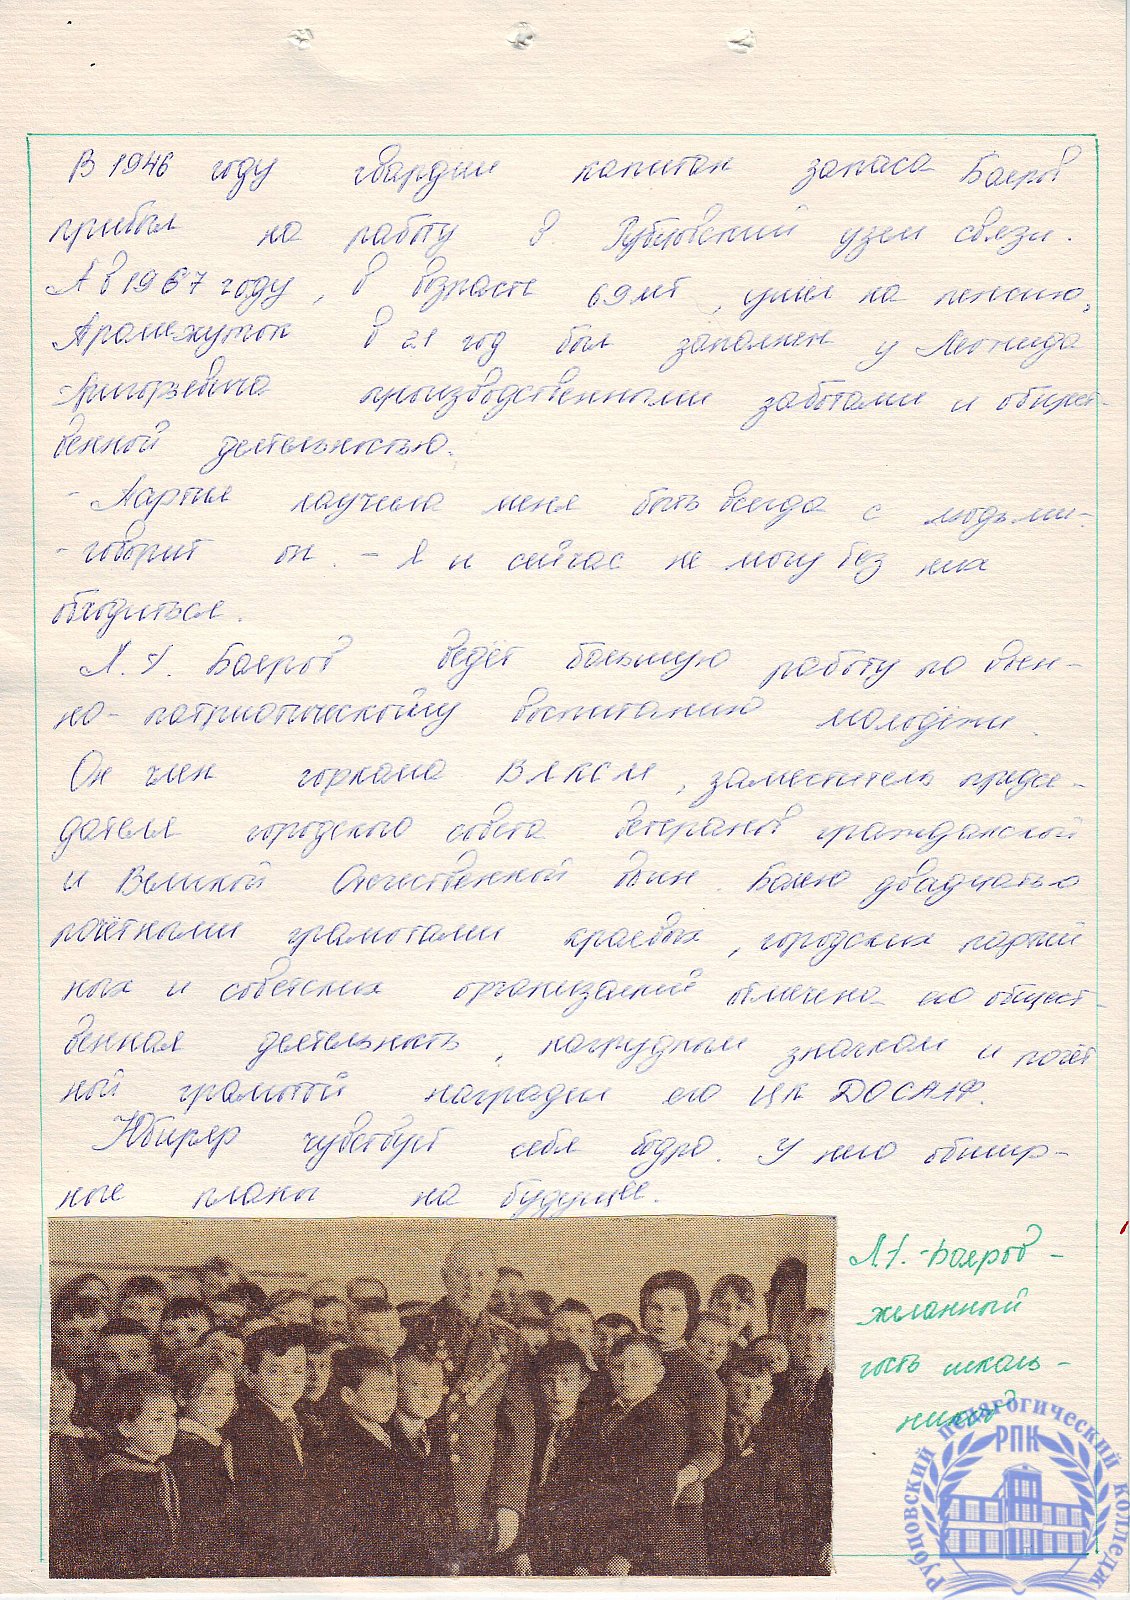 В 1946 году гвардии капитан запаса Бояров
прибыл на работу в Рубцовский узел связи.
А в 1967 году, в возрасте 69 лет, ушёл на пенсию,
Промежуток в 21 год был заполнен у Леонида
Григорьевича производственными заботами и общест-
венной деятельностью.
- Партия научила меня быть всегда с людьми-
- говорит он. - Я и сейчас не могу без них
обходиться.
Л. Г. Бояров ведёт большую работу по воен-
но-патриотическому воспитанию молодёжи.
Он член горкома ВЛКСМ, заместитель предсе-
дателя городского совета ветеранов гражданской
и Великой Отечественной войн. Более двадцатью
почётными грамотами краевых, городских партий
ных и советских организаций отмечена его общест-
венная деятельность, нагрудным значком и почёт
ной грамотой наградил его ЦК ДОСААФ.
Юбиляр чувствует себя бодро. У него обшир-
ные планы на будущее.
Л.Г. Бояров -
желанный
гость школь-
ников
РУБЦОВСКИЙ ПЕДАГОГИЧЕСКИЙ КОЛЛЕДЖ
РПК